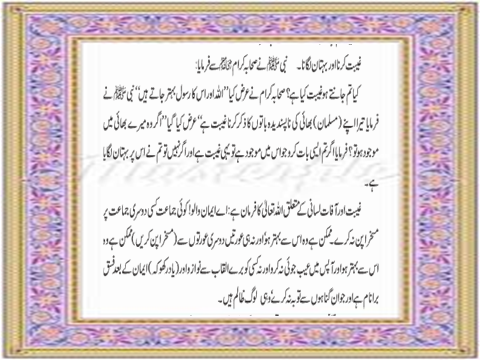 غیبت کرنا اور بہتان لگانا۔ نبی ﷺ نے صحابہ کرام ﷺ سے فرمایا:
کیا تم جانتے ہو غیبت کیا ہے؟ صحابہ کرام نے عرض کیا ”اللہ اور اس کا رسول بہتر جانتے ہیں“ نبی ﷺ نے
فرمایا تیرا اپنے (مسلمان) بھائی کی ناپسندیدہ باتوں کا ذکر کرنا غیبت ہے“ عرض کیا گیا ”اگر وہ میرے بھائی میں
موجود ہو تو؟ فرمایا اگر تم ایسی بات کرو جو اس میں موجود ہے تو یہی غیبت ہے اور اگر نہیں تو تم نے اس پر بہتان لگایا
ہے۔
غیبت اور آفات لسانی کے متعلق اللہ تعالیٰ کا فرمان ہے: اے ایمان والو! کوئی جماعت کسی دوسری جماعت پر
مسخرا پن نہ کرے۔ ممکن ہے وہ اس سے بہتر ہو اور نہ ہی عورتیں دوسری عورتوں سے (مسخرا پن کریں) ممکن ہے وہ
اس سے بہتر ہو اور آپس میں عیب جوئی نہ کرو اور نہ کسی کو برے القاب سے نوازو اور (یاد رکھو کہ) ایمان کے بعد فسق
برا نام ہے اور جو ان گناہوں سے توبہ نہ کرے وہی لوگ ظالم ہیں۔